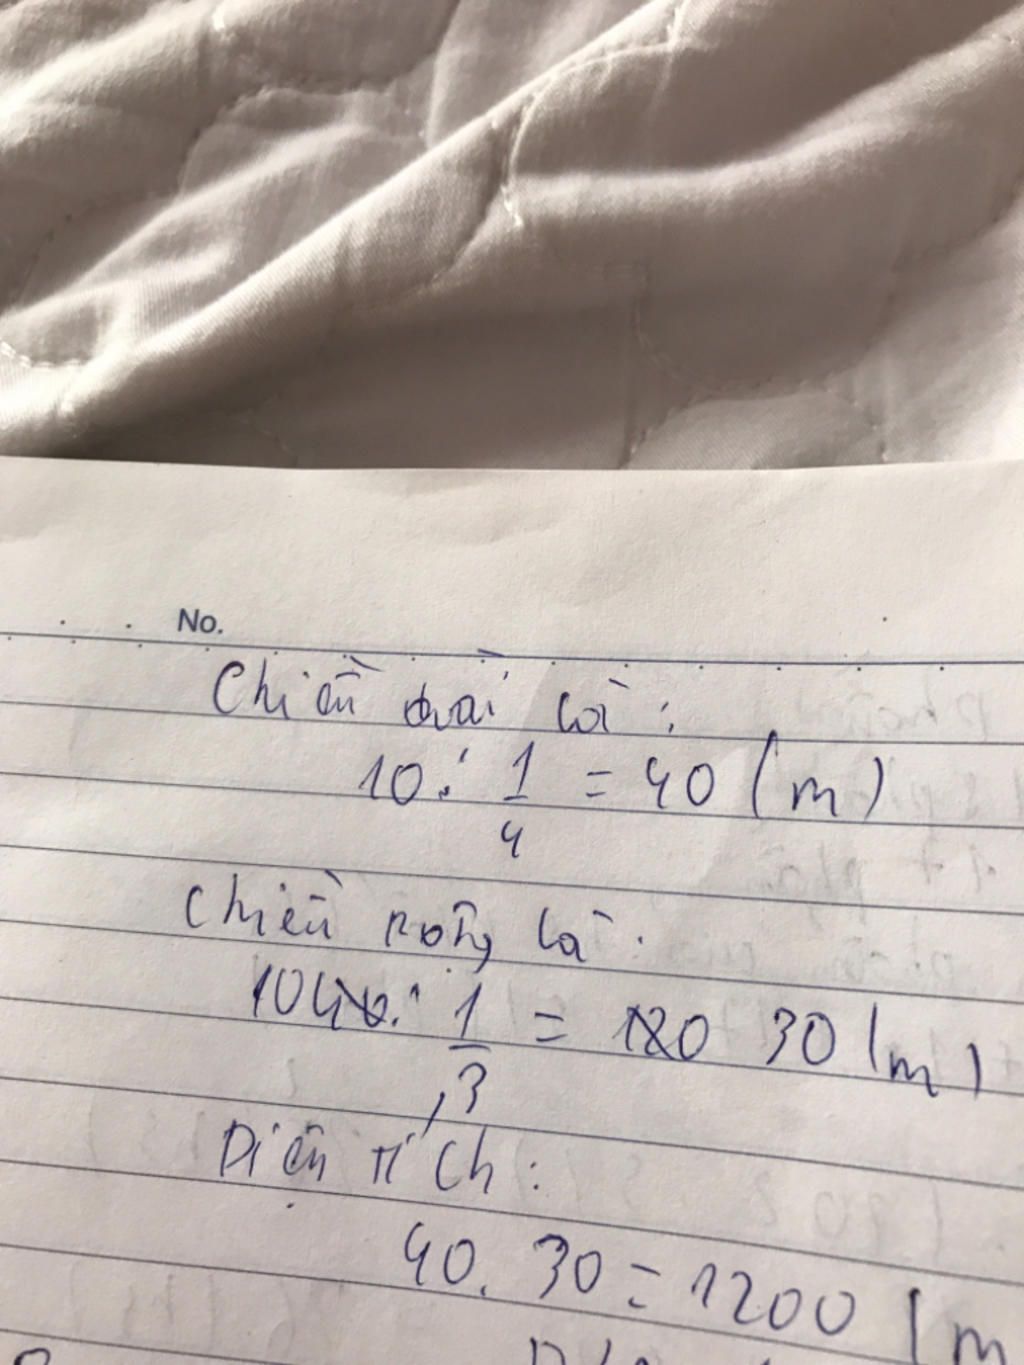 No.
Chiều dài là :
10 : 1/4 = 40 (m)
Chiều rộng là :
10 : 1/3 = 30 (m)
Diện tích :
40 . 30 = 1200 (m